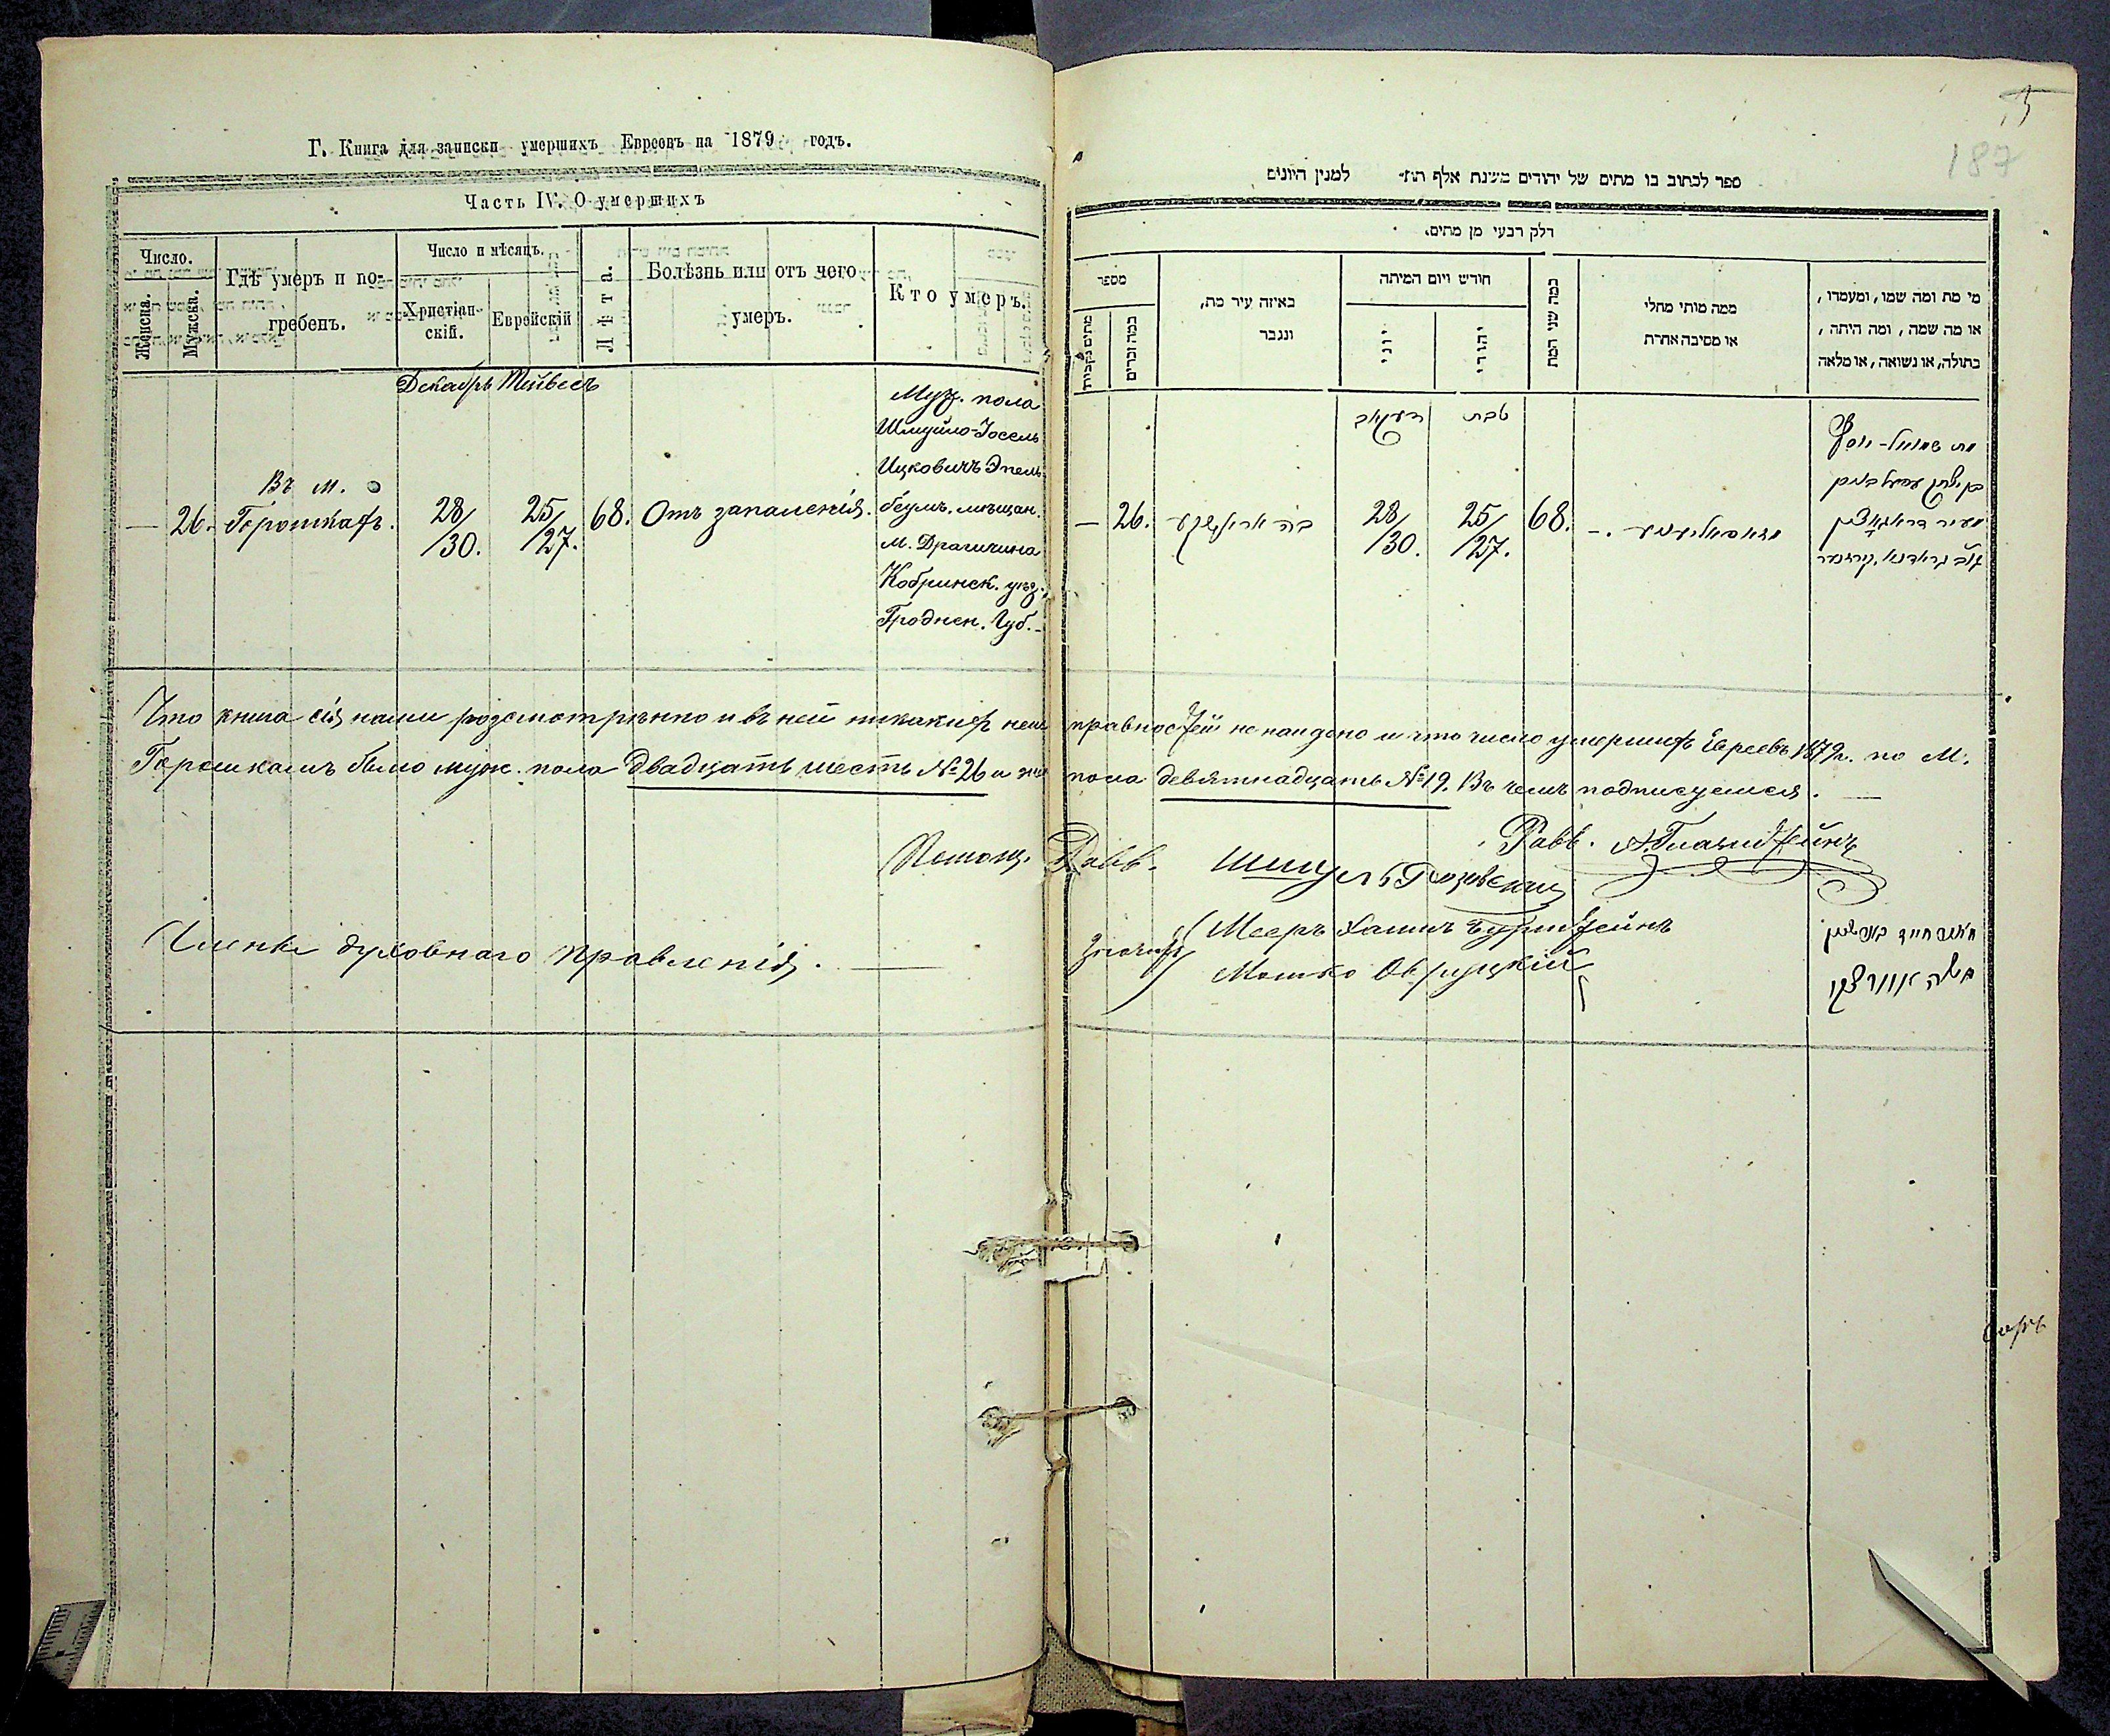 Г. Книга для записки умершихъ Евреевъ на 1879 годъ.
Часть IV. О умершихъ
Число.
Женска.
Мужска.
Гдѣ умеръ и по-
гребенъ.
Число и мѣсяцъ.
Христіан-
скій.
Еврейскій
Лѣта.
Болѣзнь или отъ чего
умеръ.
Кто умеръ.
Декабрь Тейвесъ
— 26.
Въ м.
Горошкахъ.
28/30.
25/27.
68.
Отъ запаленія.
Муж. пола
Шмуйло-Іосель
Ицковичъ Эпель-
беумъ. мѣщан.
м. Драгичина
Кобринск. уѣзд.
Гроднен. Губ.-
187
ספר לכתוב בו מתים של יהודים משנת אלף תת־ למנין היונים
חלק רבעי מן מתים.
מספר
מתים נקבות
כמה זכרים
באיזה עיר מת,
ונגבר
חודש ויום המיתה
יוני
יהודי
כמה שני המת
ממה מותי מחלי
או מסיבה אחרת
מי מת ומה שמו, ומעמדו,
או מה שמה, ומה היתה,
בתולה, או נשואה, או מלאה
דעקאב
טבת
— 26.
28/30.
25/27.
68. —.
מת שמואל-יוסף
Что книга сія нами розсмотрѣнно и въ ней никакихъ неис правностей не найдено и что число умершихъ Евреевъ 1879 г. по М.
Горошкамъ было муж. пола двадцать шесть № 26 и жен пола девятнадцать № 19. Въ чемъ подписуемся. —
Равв. А. Глазштейнъ
Помощ. Равв. Шмуль
Члены духовнаго Правленія. —
Мееръ Хаимъ Бурштейнъ
Мошко Овруцкій
משה אוורוצקי